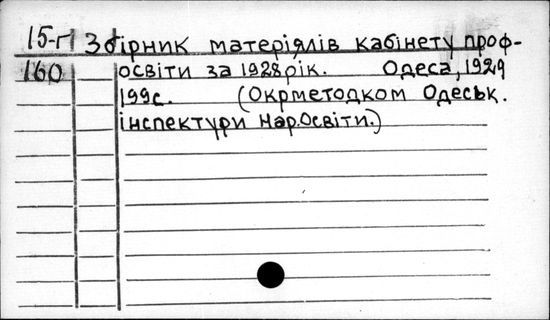 15-г Збірник матеріялів кабінету проф-
160 освіти за 1928 рік. Одеса, 1929
199с. (Окрметодком Одеськ.
інспектури Нар.Освіти.)